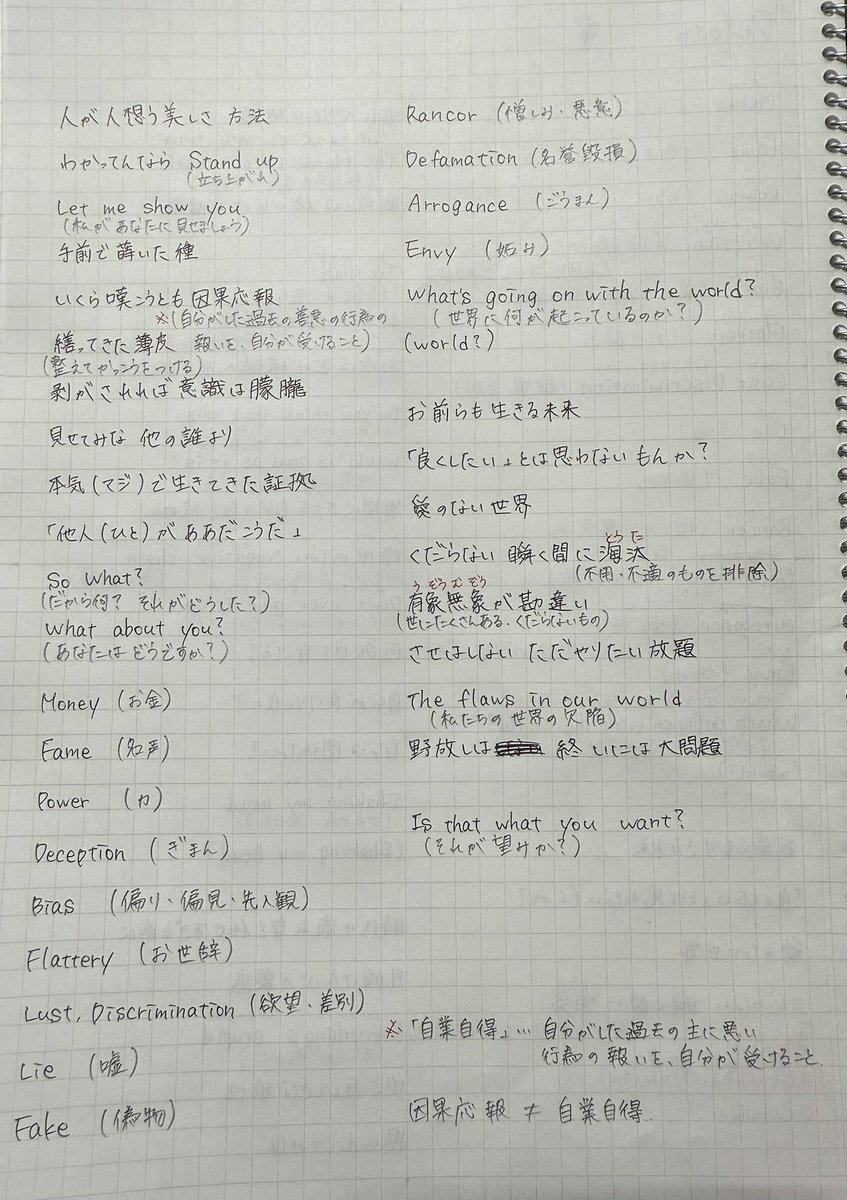 人が人想う美しさ 方法
わかってんなら Stand up
(立ち上がれ)
Let me show you
(私があなたに見せましょう)
手前で蒔いた種
いくら嘆こうとも 因果応報
※(自分がした過去の善悪の行為の
報いを、自分が受けること)
繕ってきた薄皮
(整えてかっこうをつける)
剥がされれば意識は朦朧
見せてみな 他の誰より
本気(マジ)で生きてきた証拠
「他人(ひと)がああだこうだ」
So what?
(だから何? それがどうした?)
What about you?
(あなたはどうですか?)
Money (お金)
Fame (名声)
Power (力)
Deception (ぎまん)
Bias (偏り・偏見・先入観)
Flattery (お世辞)
Lust, Discrimination (欲望・差別)
Lie (嘘)
Fake (偽物)
Rancor (憎しみ・悪意)
Defamation (名誉毀損)
Arrogance (ごうまん)
Envy (妬み)
What's going on with the world?
(世界に何が起こっているのか?)
(world?)
お前らも生きる未来
「良くしたい」とは思わないもんか?
愛のない世界
とうた
くだらない 瞬く間に淘汰
(不用・不適のものを排除)
うぞうむぞう
有象無象が勘違い
(世にたくさんある、くだらないもの)
させはしない ただやりたい放題
The flaws in our world
(私たちの世界の欠陥)
野放しは 終いには大問題
Is that what you want?
(それが望みか?)
※「自業自得」… 自分がした過去の主に悪い
行為の報いを、自分が受けること.
因果応報 ≠ 自業自得..